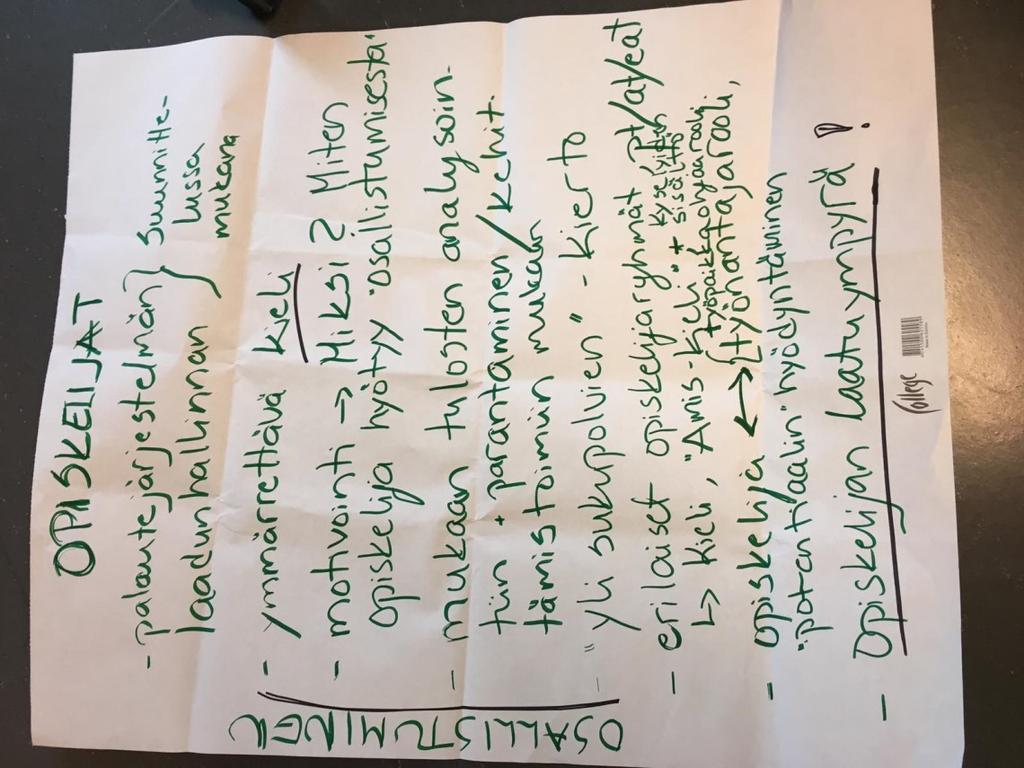 OPISKELIJAT
- palautejärjestelmän } Suunnitte-
laadunhallinnan } lussa
mukana
OSALLISTUMINEN
- ymmärrettävä kieli
- motivointi → Miksi? Miten
opiskelija hyötyy "osallistumisesta"
- mukaan tulosten analysoin-
tiin + parantaminen / kehit-
tämistoimiin mukaan
- "yli sukupolvien" - kierto
- erilaiset opiskelijaryhmät pt/at/eat
↳ kieli, "Amis-kieli" + kyselyidin
sisältö
- opiskelija ↔ [työpaikkaohjaarooli
työnantajarooli,
"potentiaalin" hyödyntäminen
- Opiskelijan laatuympyrä!
College